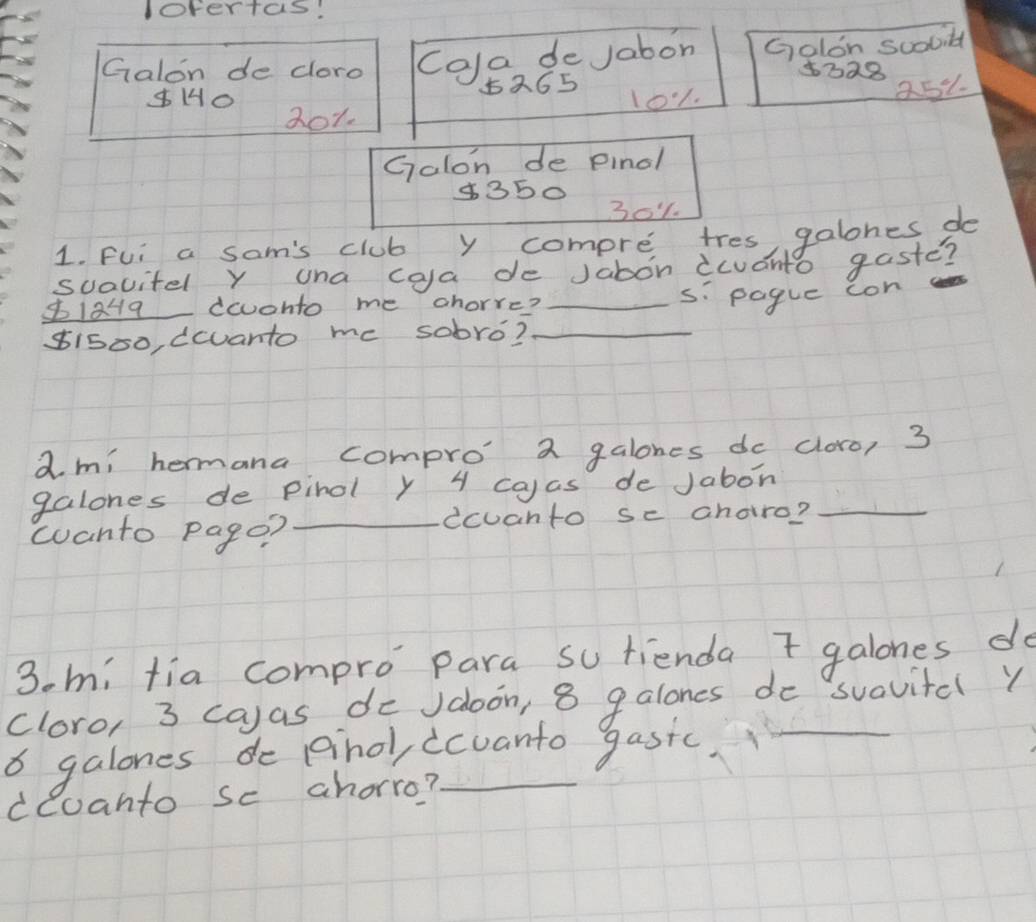 ¡ofertas!
Galón de cloro
$140
20%
Caja de Jabón
$265
10%
Galón suavitel
$328
25%
Galón de Pinol
$350
30%
1. Fui a sam's club y compré tres galones de
suavitel y una caja de Jabón ¿cuánto gasté?
$1249 ¿cuanto me ahorre? si pague con
$1500, ¿cuanto me sobró?
2. mi hermana compró 2 galones de cloro, 3
galones de Pinol y 4 cajas de Jabón
cuanto pago? ¿cuanto se ahorro?
3. mi tia compró para su tienda 7 galones de
cloro, 3 cajas de Jabón, 8 galones de suavitel y
6 galones de Pinol, ¿cuanto gasto
¿cuanto se ahorro?